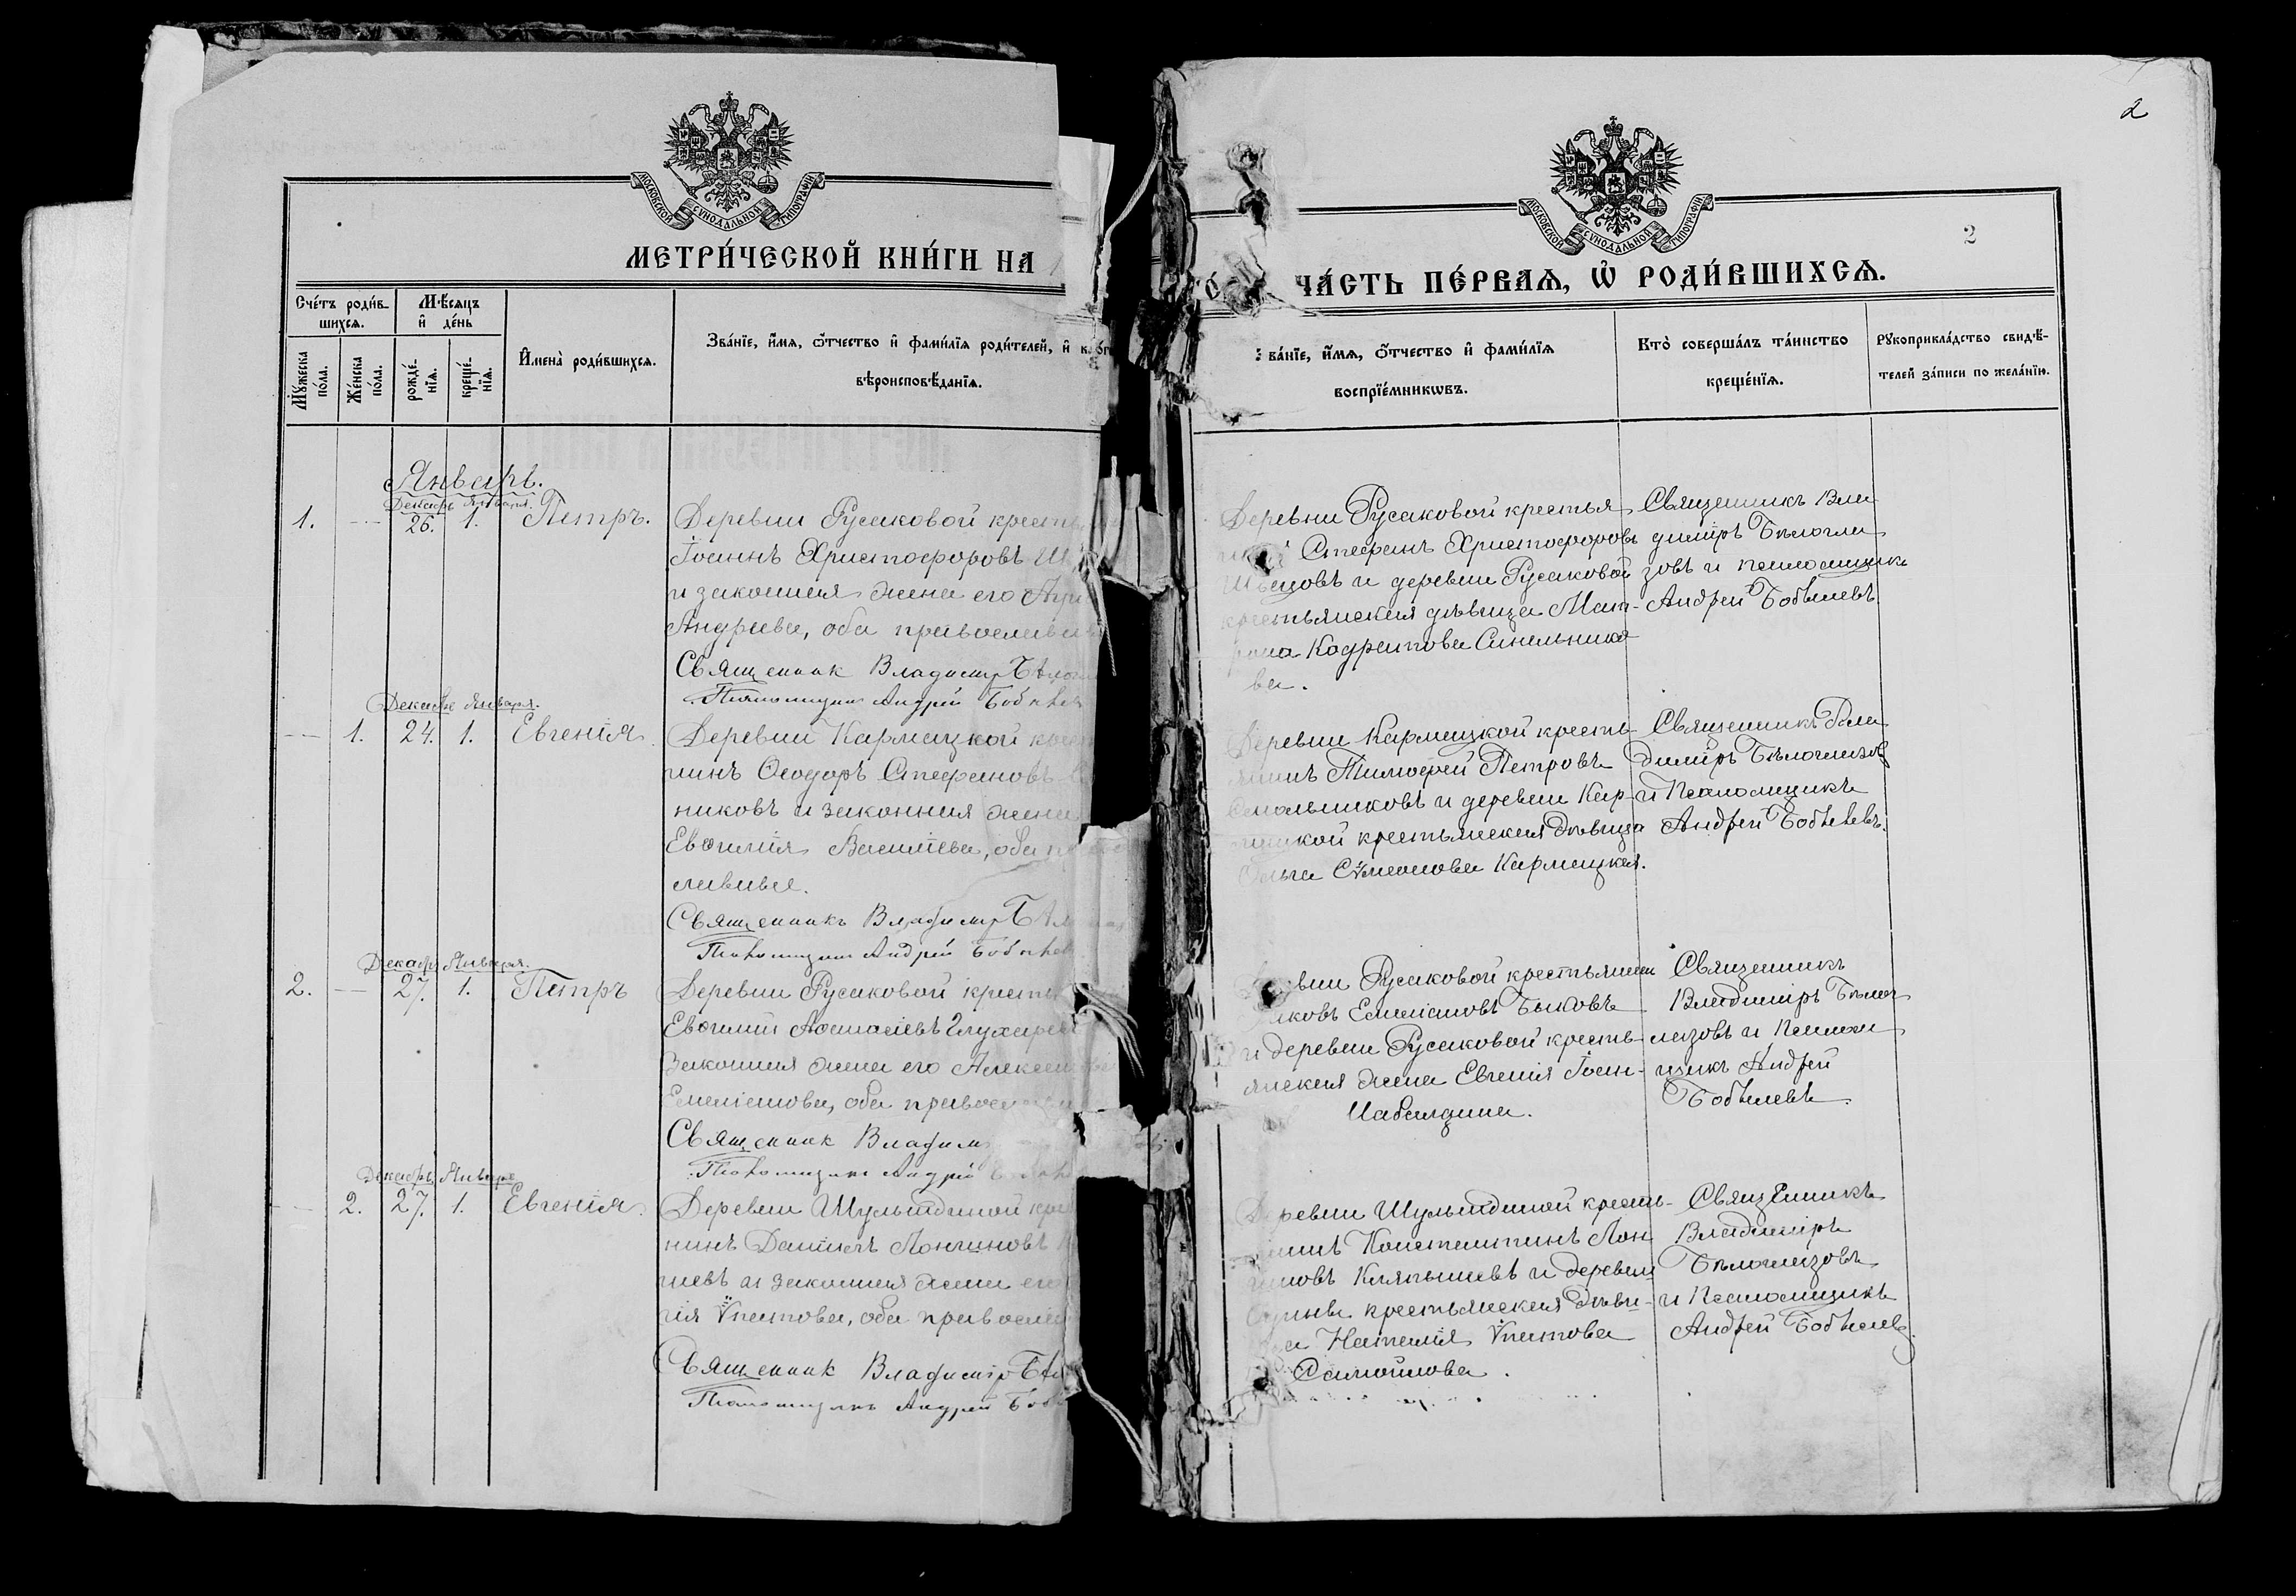 2
МОСКОВСКОЙ СѴНОДАЛЬНОЙ ТИПОГРАФІИ
МЕТРИ́ЧЕСКОЙ КНИ́ГИ НА
Сче́тъ роди́в-
шихсѧ.
Мѣ́сѧцъ
и҆ де́нь
Мꙋ́жеска
по́ла.
Же́нска
по́ла.
рожде́-
нїѧ.
креще́-
нїѧ.
И҆мена̀ роди́вшихсѧ.
Зва́нїе, и҆́мѧ, ѻ҆́тчество и҆ фами́лїѧ роди́телей, и҆
вѣроисповѣ́данїѧ.
Январь.
Декабрь Января.
1. -- 26. 1. Петръ.
Деревни Русаковой кресть
Іоаннъ Христофоровъ
и законная жена его
Андреева, оба православн
Священник Владимир
Псаломщик Андрей
Декабр Января.
-- 1. 24. 1. Евгенія.
Деревни Кармацкой
нинъ Ѳеодоръ Стефановъ
никовъ и законная жена
Евѳимія Василіева, оба
славные.
Священникъ Владимир
Псаломщик Андрей
Декабр Января.
2. -- 27. 1. Петръ
Деревни Русаковой кресть
Евѳимій Аѳанасіевъ Глухарев
законная жена его
Емеліанова, оба
Священник Владим
Псаломщик Андрей
Декабрь Января
-- 2. 27. 1. Евгенія.
Деревни Шульгдиной
нинъ Даніилъ Лонгиновъ
шевъ и законная жена его
гія Ѵпатова, оба православ
Священник Владимір
Псаломщикъ Андрей
МОСКОВСКОЙ СѴНОДАЛЬНОЙ ТИПОГРАФІИ
2
ЧА́СТЬ ПЕ́РВАѦ, Ѡ҆ РОДИ́ВШИХСѦ.
ва́нїе, и҆́мѧ, ѻ҆́тчество и҆ фами́лїѧ
воспрїе́мникѡвъ.
Кто̀ соверша́лъ та́инство
креще́нїѧ.
Рꙋкоприкла́дство свидѣ́-
телей за́писи по жела́нїю.
Деревни Русаковой крестья
Стефанъ Христофоровъ
и деревни Русаковой
крестьянская дѣвица Мат-
рона Кодратова Синельнико
ва.
Священникъ Вла
димиръ Бѣлогла
зовъ и псаломщикъ
Андрей Бобылевъ.
Деревни Кармацкой кресть-
янинъ Тимоѳей Петровъ
и деревни Кар-
мацкой крестьянская дѣвица
Ольга Сѵмеонова Кармацкая.
Священникъ Вла
димиръ Бѣлоглазов
и Псаломщикъ
Андрей Бобылевъ.
Деревни Русаковой крестьянин
Яковъ Емеліановъ Быковъ
и деревни Русаковой кресть-
янская жена Евгенія Іоан-
Шабалдина.
Священникъ
Владиміръ Бѣлог
лазовъ и Псалом
щикъ Андрей
Бобылевъ.
Деревни Шульгдиной кресть-
янинъ Константинъ Лон
гиновъ Кляпышевъ и деревни
крестьянская дѣви-
ца Наталія Ѵпатова
Самойлова.
Священникъ
Владиміръ
Бѣлоглазовъ
и Псаломщикъ
Андрей Бобылевъ.